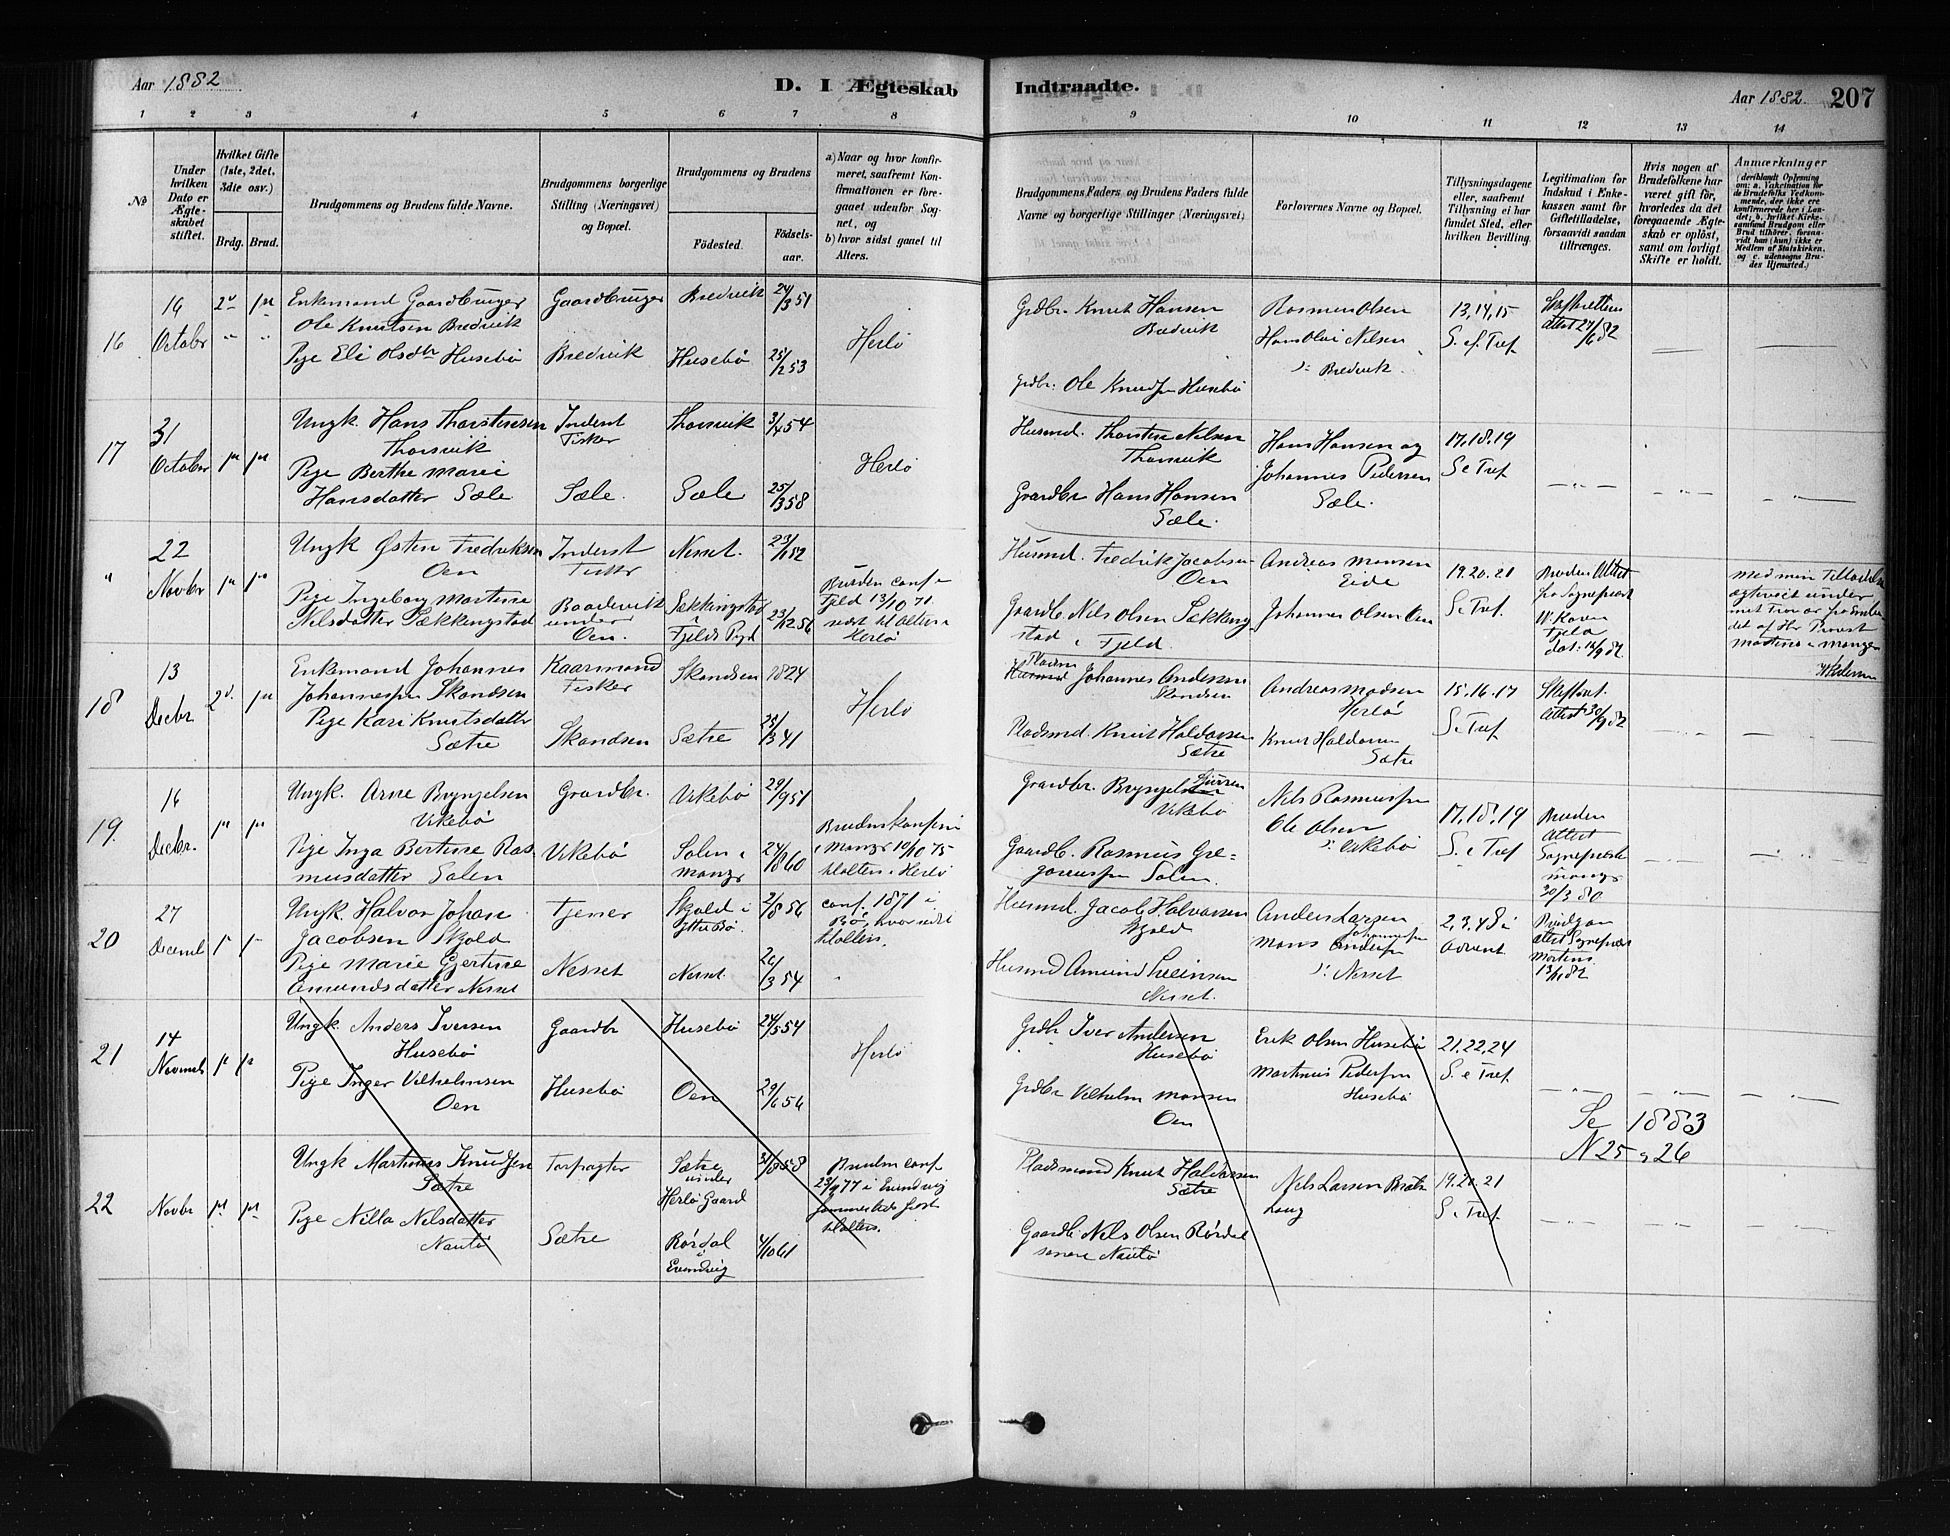 Aar 1882
D. I Ægteskab Indtraadte.
Aar 1882. 207
1 2 3 4 5 6 7 8 9 10 11 12 13 14
№
Under hvilken Dato er Ægteskabet stiftet.
Hvilket Gifte (1ste, 2det, 3die osv.)
Brdg. Brud.
Brudgommens og Brudens fulde Navne.
Brudgommens borgerlige Stilling (Næringsvei) og Bopæl.
Brudgommens og Brudens
Födested.
Födselsaar.
a) Naar og hvor konfirmeret, saafremt Konfirmationen er foregaaet udenfor Sognet, og
b) hvor sidst gaaet til Alters.
Brudgommens Faders og Brudens Faders fulde Navne og borgerlige Stillinger (Næringsvei)
Forlovernes Navne og Bopæl.
Tillysningsdagene eller, saafremt Tillysning ei har fundet Sted, efter hvilken Bevilling.
Legitimation for Indskud i Enkekassen samt for Giftetilladelse, forsaavidt saadan tiltrænges.
Hvis nogen af Brudefolkene har været gift för, hvorledes da det foregaaende Ægteskab er oplöst, samt om lovligt Skifte er holdt.
Anmærkninger
16
16 October
2d 1st
Enkemand Gaardbruger
Ole Knutsen Bredvik
Pige Eli Olsdtr Husebö
Gaardbruger
Bredvik
Bredvik 24/3 51
Husebö 25/2 53
Herlö
Grdbr. Knut Hansen
Bredvik
Grdbr. Ole Knudsen Husebö
Rasmus Olsen
Hans Olai Nilsen
Bredvik
13, 14, 15
S. e. Tref
Skifterettens
Attest 27/6 82
17
31 October
Ungk. Hans Thorstensen
Thorsvik
Pige Berthe Marie
Hansdatter Sæle
Inderst
Fisker
Sæle.
Thorsvik 3/4 54
Sæle 25/3 58
Herlö
Husmd. Thorsten Nilsen
Thorsvik
Gaardbr Hans Hansen
Sæle.
Hans Hansen og
Johannes Pedersen
Sæle.
17. 18. 19
S e Tref
"
22 Novbr
Ungk Østen Fredriksen
Oen
Pige Ingeborg Martine
Nilsdatter Sækkingstad
Inderst
Fisker
Baadevik
under
Oen.
Nesset. 23/1 52
Sækkingstad
i
Fjelds Pgd 23/12 56
Bruden conf
Fjeld 13/10 71
sidst til Alters i
Herlö
Husmd. Fredrik Jacobsen
Oen
Gaardb. Nils Olsen Sækkingstad
i Fjeld.
Andreas Monsen
Eide
Johannes Olsen Oen
19. 20. 21
S e Tref
Bruden Attest
fra Sognepræst
W. Koren
Fjeld
dat: 16/9 82
Med min Tilladelse
ægteviet under
det af Hr Provst
Martens i Manger
18
13 Decbr.
2d. 1st
Enkemand Johannes
Johannessen Skandsen
Pige Kari Knutsdatter
Sætre
Kaarmand
Fisker
Skandsen
Skandsen 1824
Sætre 25/3 41
Herlö
Pladsm
Johannes Andersen
Skandsen
Pladsmd. Knut Haldorsen
Sætre
Andreas Madsen
Herlö
Knut Haldorsen
Sætre
15. 16. 17
S e Tref
Skifteret.
Attest 30/9 82
19.
16 Decbr.
Ungk. Arne Bryngelsen
Vikebö
Pige Inga Bertine Rasmusdatter Solen
Gaardbr.
Vikebö
Vikebö 29/9 51
Solen i
Manger 24/10 60
Brudens konfirm
i Manger 10/10 75
til Alters i Herlö
Gaardbr. Bryngel
Vikebö
Gaardb. Rasmus Gregoriussen Solen.
Nils Rasmussen
Ole Olsen
Vikebö
17. 18. 19
S. e Tref
Bruden
Attest
Sognepræst
Manger
30/3 80
20
27 Decemb
Ungk. Halvor Johan
Jacobsen Skjold
Pige Marie Gjertine
Amundsdatter Nesset
Tjener
Nesset
Skjold i
Ytre Bö. 2/8 56
Nesset. 20/3 54
conf. 1871 i
Bö, hvor sidst
til Alters.
Husmd. Jacob Halvorsen
Skjold
Husmd Amund Sveinsen
Nesset.
Anders Larsen
Mons Andersen Johannessen
Nesset
2, 3, 4 S i
Advent
Brudgom
Attest Sognepræst
Martens
21
14 Novemb
Ungk. Anders Iversen
Husebö
Pige Inger Vilhelmsen
Oen
Gaardbr
Husebö
Husebö 24/5 54
Oen 29/6 56
Herlö
Grdbr Iver Andersen
Husebö
Grdbr Vilhelm Monsen
Oen
Erik Olsen Husebö
Martinus Pedersen
Husebö
21, 22, 24
S. e Tref
Se 1883
N 25 & 26
22
Novbr
Ungk Martinus Knudsen
Sætre
Pige Nilla Nilsdatter
Nautö
Forpagter
Sætre
Sætre
under
Herlö Gaard 31/8 58
Rördal
i
Evindvig 4/10 61
Bruden conf
23/9 77 i Evindvig
sammesteds sidst
til Alters.
Pladsmand Knut Haldorsen
Sætre
Gaardb. Nels Olsen Rördal
senere Nautö
Nils Larsen Bratlang
19. 20. 21
S. e Tref